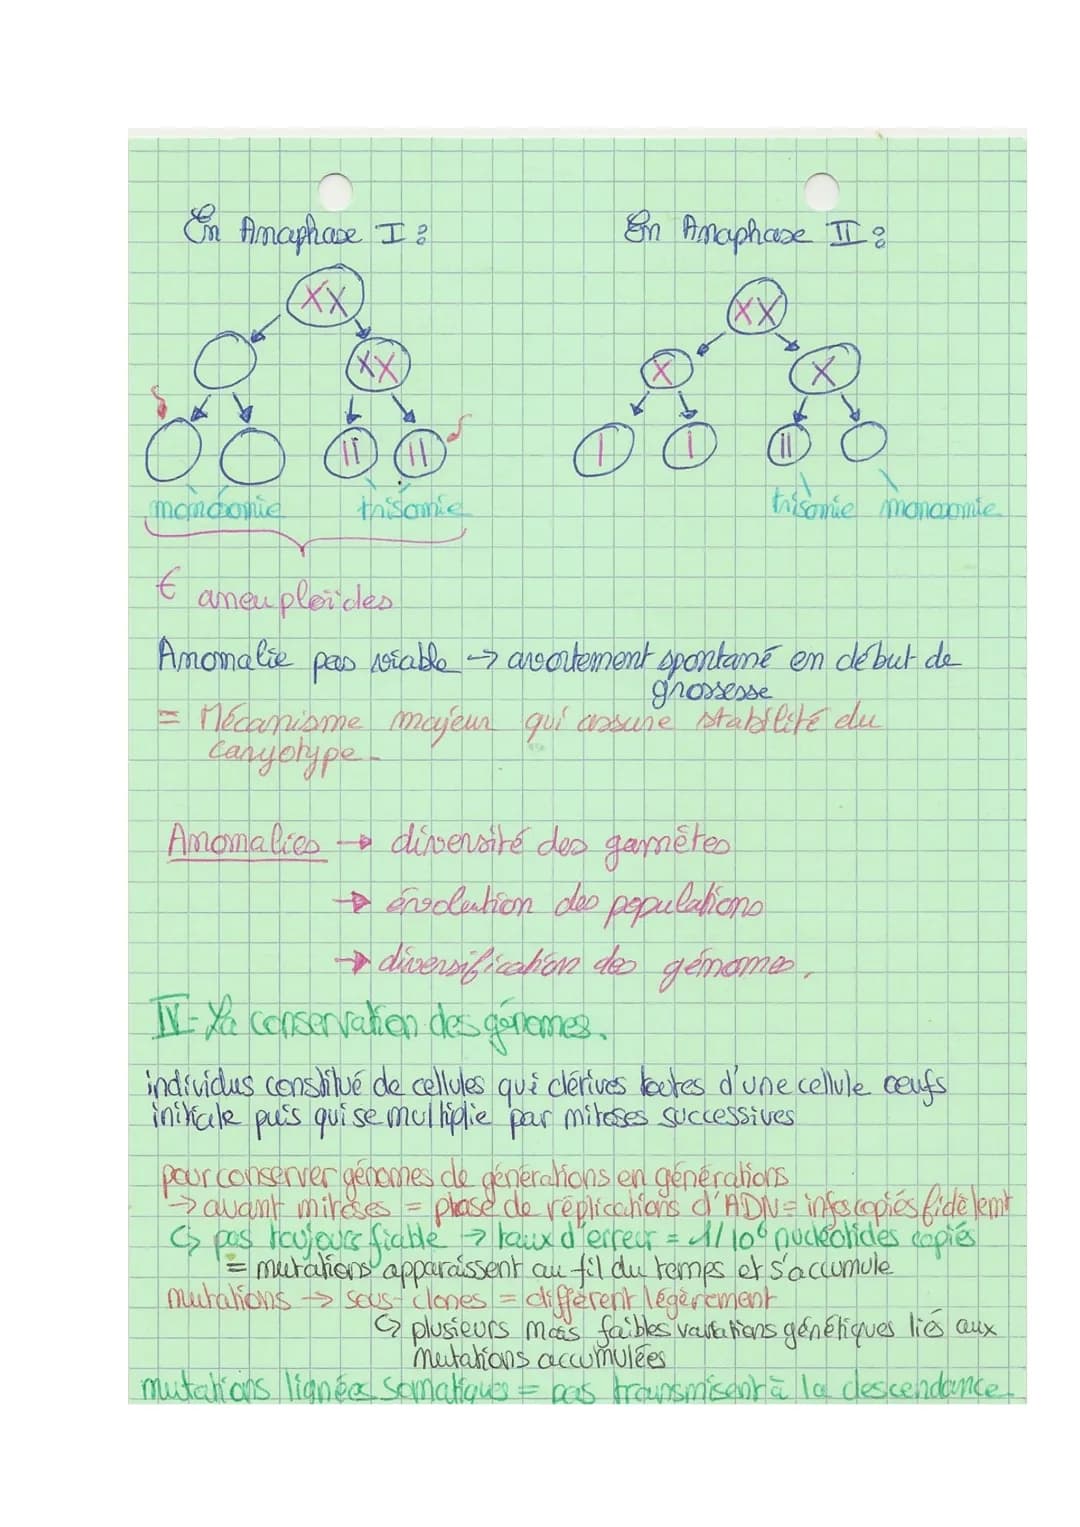 En Anaphase I :
En Anaphase II :
XX
XX
XX
X
X
II
II
I
I
II
monosomie
trisomie
trisomie
monosomie
aneuploïdes
Anomalie pas viable → avortement spontané en début de
grossesse
= Mécanisme majeur qui assure stabilité du
caryotype.
Anomalies → diversité des gamètes
→ évolution des populations
→ diversification des génomes.
IV- La conservation des génomes.
individus constitué de cellules qui dérives toutes d'une cellule œufs
initiale puis qui se multiplie par mitoses successives
pour conserver génomes de générations en générations
→ avant mitoses = phase de réplications d'ADN = infos copiés fidèlemt
↳ pas toujours fiable → taux d'erreur = 1/10⁶ nucléotides copiés
= mutations apparaissent au fil du temps et s'accumule
mutations → sous-clones = différent légèrement
↳ plusieurs mais faibles variations génétiques liés aux
mutations accumulées
mutations lignées somatiques = pas transmisent à la descendance